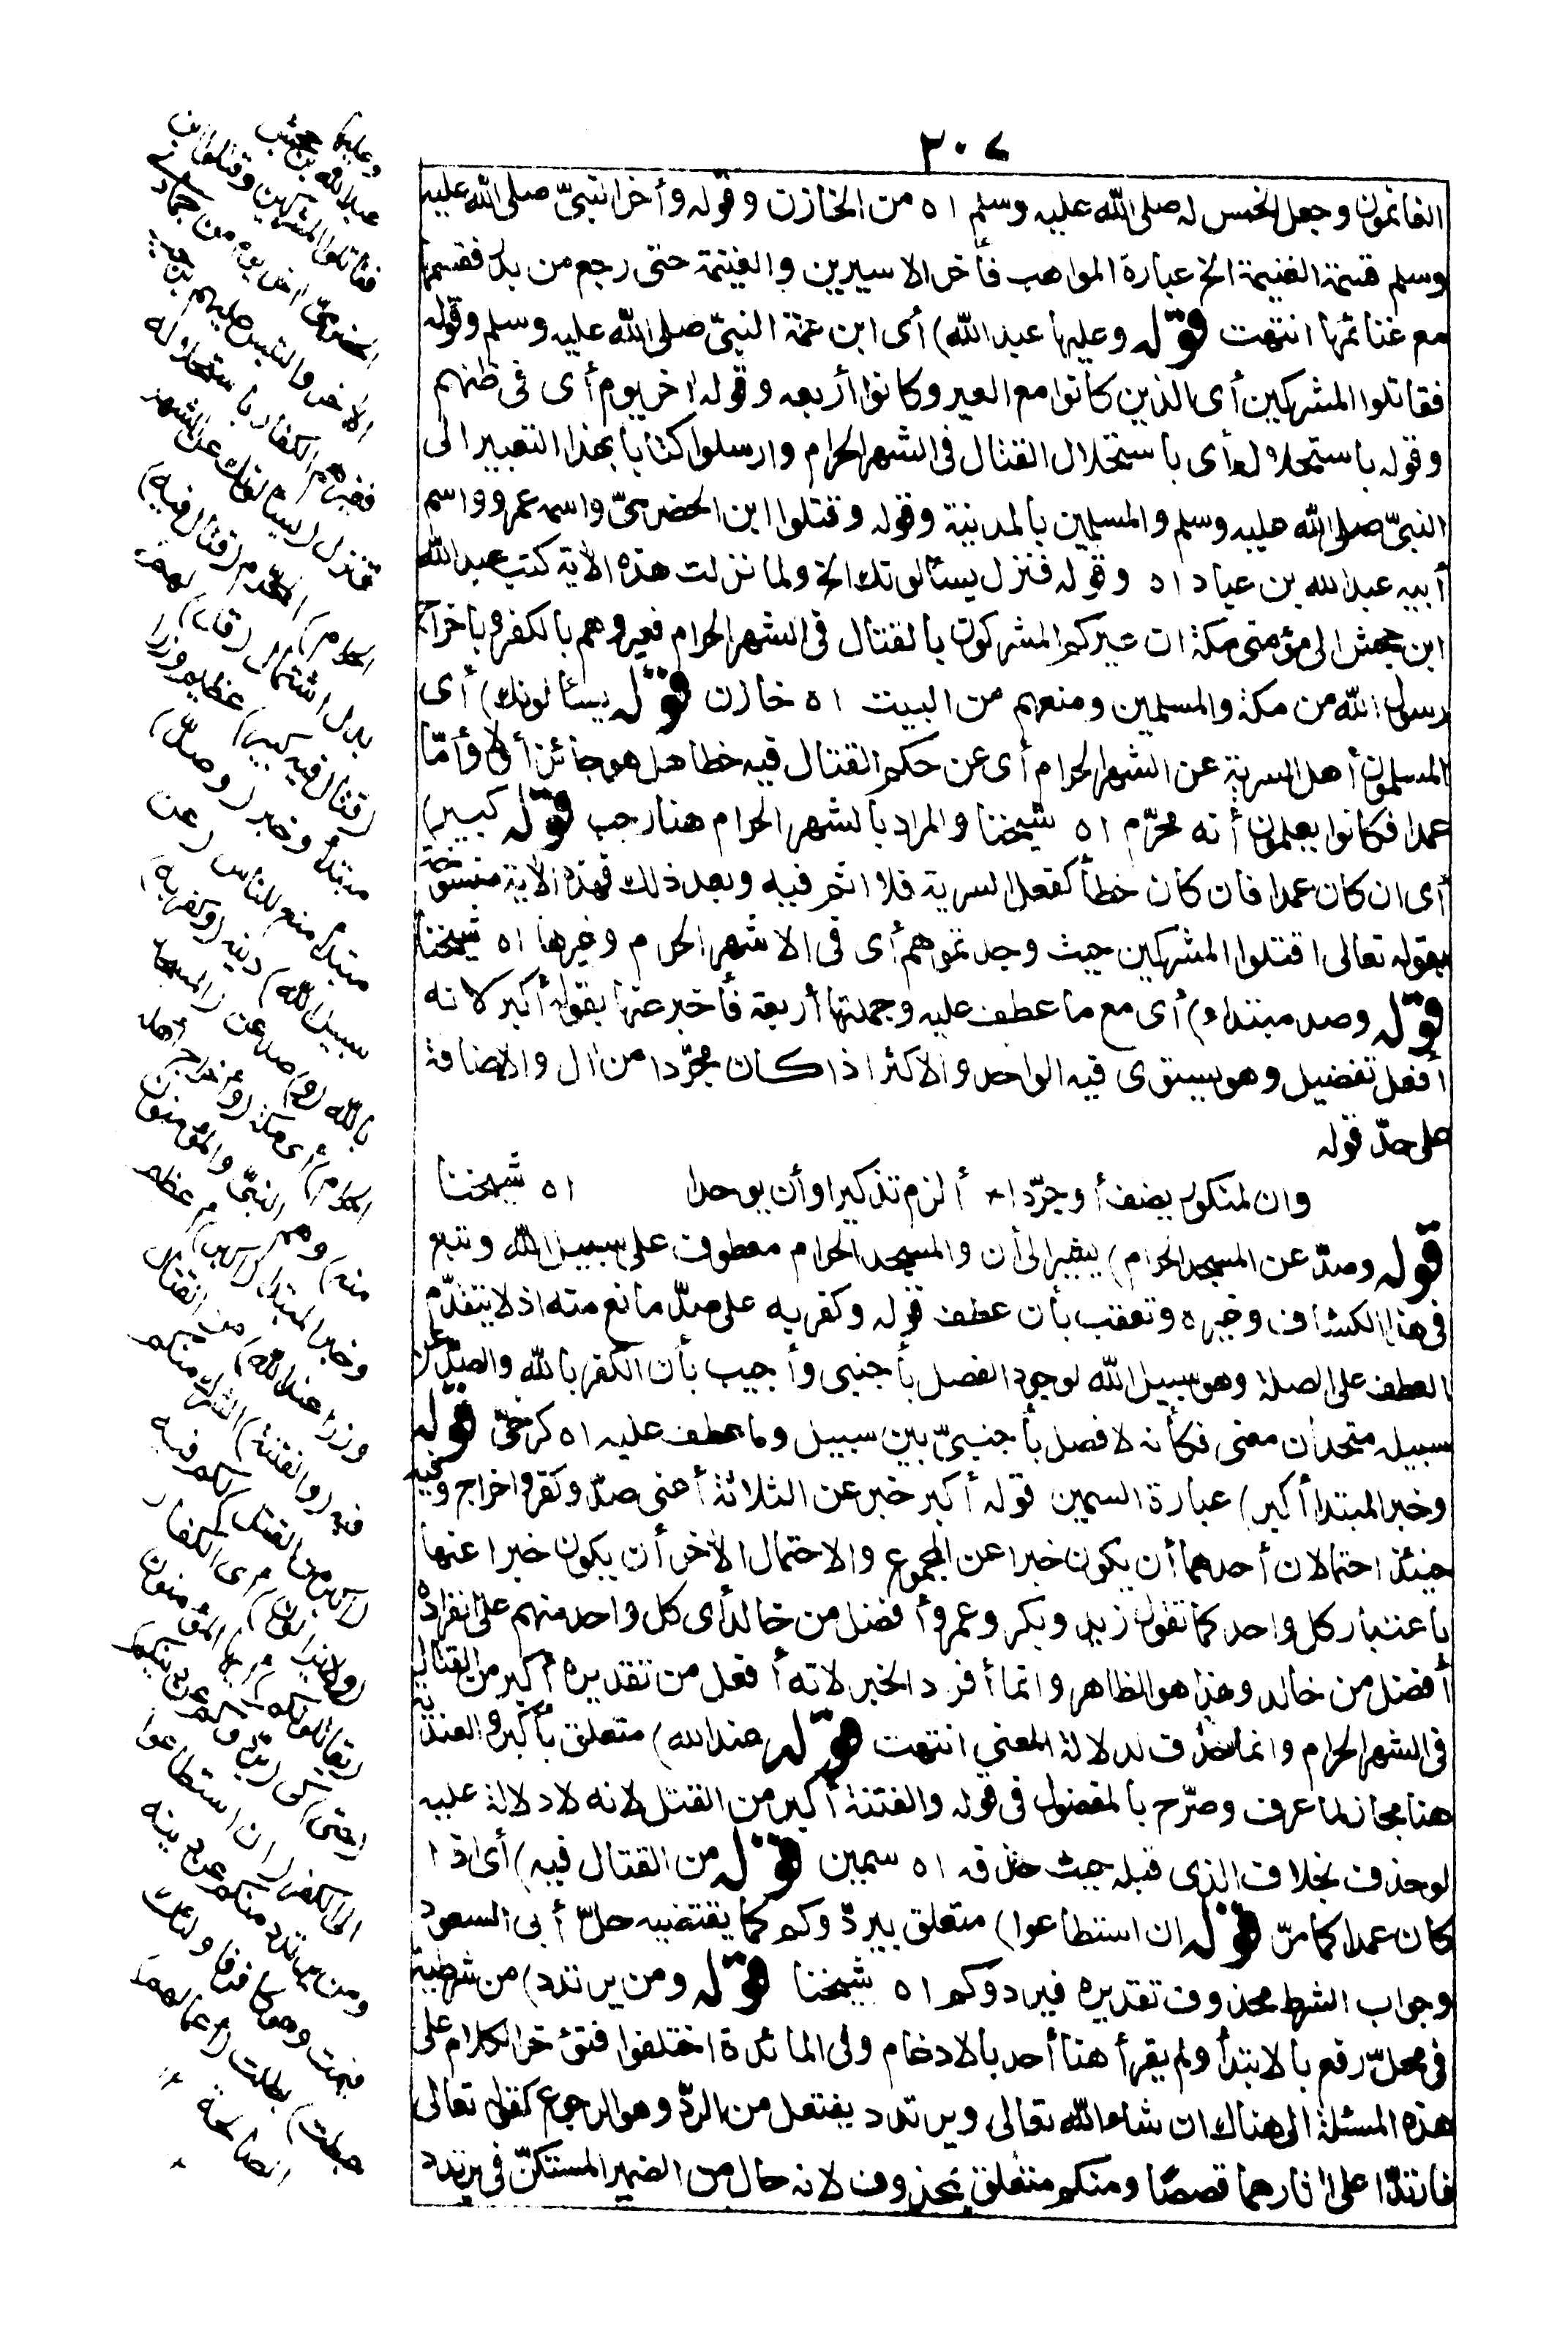 ٢٠٧
الغانمون وجعل الخمس له صلى الله عليه وسلم اه من الخازن وقوله وأخر النبىّ صلى الله عليه
وسلم قسمة الغنيمة الخ عبارة المواهب فأخر الاسيرين والغنيمة حتى رجع من بدر فقسمها
مع غنائمها انتهت قوله وعليها عبد الله) أى ابن عمة النبىّ صلى الله عليه وسلم وقوله
فقاتلوا المشركين أى الذين كانوا مع العير وكانوا أربعه وقوله اخر يوم أى فى ظنهم
وقوله باستحلاله أى باستحلال القتال فى الشهر الحرام وارسلوا كتابا بهذا التعبير الى
النبىّ صلى الله عليه وسلم والمسلمين بالمدينة وقوله وقتلوا ابن الحضرمىّ واسمه عمرو واسم
أبيه عبد الله بن عباد اه وقوله فنزل يسألونك الخ ولما نزلت هذه الآية كتب عبد الله
ابن جحش الى مؤمنى مكة ان عيركم المشركون بالقتال فى الشهر الحرام فعيروهم بالكفر وباخراج
رسول الله من مكة والمسلمين ومنعهم من البيت اه خازن قوله يسألونك) أى
المسلمون أهل السرية عن الشهر الحرام أى عن حكم القتال فيه خطا هل هو جائز أولا وأمّا
عمدا فكانوا يعلمون أنه محرّم اه شيخنا والمراد بالشهر الحرام هنا رجب قوله كبير)
أى ان كان عمدا فان كان خطأ كفعل السرية فلا اثم فيه وبعد ذلك فهذه الآية منسوخة
بقوله تعالى اقتلوا المشركين حيث وجدتموهم أى فى الاشهر الحرم وغيرها اه شيخنا
قوله وصد مبتداء) أى مع ما عطف عليه وجملتها أربعة فأخبر عنها بقوله أكبر لانه
أفعل تفضيل وهو يستوى فيه الواحد والاكثر اذا كان مجرّدا من ال والاضافة
على حدّ قوله
وان لمنكور يضف أوجرّدا * ألزم تذكيرا وأن يوحدا اه شيخنا
قوله وصدّ عن المسجد الحرام) يشير الى أن والمسجد الحرام معطوف على سبيل الله وتبع
فى هذا الكشاف وغيره وتعقب بأن عطف قوله وكفر به على صدّ مانع منه اذ لا يتقدّم
العطف على الصلة وهو سبيل الله لوجود الفصل بأجنبى وأجيب بأن الكفر بالله والصدّ عن
سبيله متحدان معنى فكأنه لا فصل بأجنبىّ بين سبيل وما عطف عليه اه كرخىّ قوله
وخبر المبتدا أكبر) عبارة السمين قوله أكبر خبر عن الثلاثة أعنى صدّ وكفر واخراج وفيه
حينئذ احتمالان أحدهما أن يكون خبرا عن المجموع والاحتمال الآخر أن يكون خبرا عنها
باعتبار كل واحد كما تقول زيد وبكر وعمرو أفضل من خالد أى كل واحد منهم على انفراده
أفضل من خالد وهذا هو الظاهر وانما أفرد الخبر لانه أفعل من تقديره أكبر من القتال
فى الشهر الحرام وانما حذف لدلالة المعنى انتهت قوله عند الله) متعلق بأكبر والعندية
هنا مجاز لما عرف وصرّح بالمفضول فى قوله والفتنة أكبر من القتل لانه لا دلالة عليه
لو حذف بخلاف الذى قبله حيث حذفه اه سمين قوله من القتال فيه) أى اذا
كان عمدا كما مرّ قوله ان استطاعوا) متعلق بيردّوكم كما يقتضيه حلّ أبى السعود
وجواب الشرط محذوف تقديره فيردوكم اه شيخنا قوله ومن يرتدد) من شرطية
فى محلّ رفع بالابتدأ ولم يقرأ هنا أحد بالادغام وفى المائدة اختلفوا فنؤخر الكلام على
هذه المسئلة الى هناك ان شاء الله تعالى ويرتدد يفتعل من الردّ وهو الرجوع كقوله تعالى
فارتدّا على اثارهما قصصا ومنكم متعلق بمحذوف لانه حال من الضمير المستكنّ فى يرتدد
وعليها
عبد الله بن جحش
فقاتلوا المشركين وقتلوا ابن
الحضرمىّ اخر يوم من جمادى
الآخرة والتبس عليهم برجب
فعيرهم الكفار باستحلاله
فنزل (يسألونك عن الشهر
الحرام) المحرّم (قتال فيه)
بدل اشتمال (قل) لهم
(قتال فيه كبير) عظيم وزرا
مبتدأ وخبر (وصدّ)
مبتدأ منع للناس (عن
سبيل الله) دينه (وكفر به)
بالله (و) صد عن (المسجد
الحرام) أى مكة (واخراج أهله
منه) وهم النبىّ والمؤمنون
وخبر المبتدا (أكبر) أعظم
وزرا (عند الله) من القتال
فيه (والفتنة) الشرك منكم
(أكبر من القتل) لكم فيه
(ولا يزالون) أى الكفار
(يقاتلونكم) أيها المؤمنون
(حتى) كى (يردّوكم عن دينكم)
الى الكفر (ان استطاعوا
ومن يرتدد منكم عن دينه
فيمت وهو كافر فاولئك
حبطت) بطلت (أعمالهم)
الصالحة